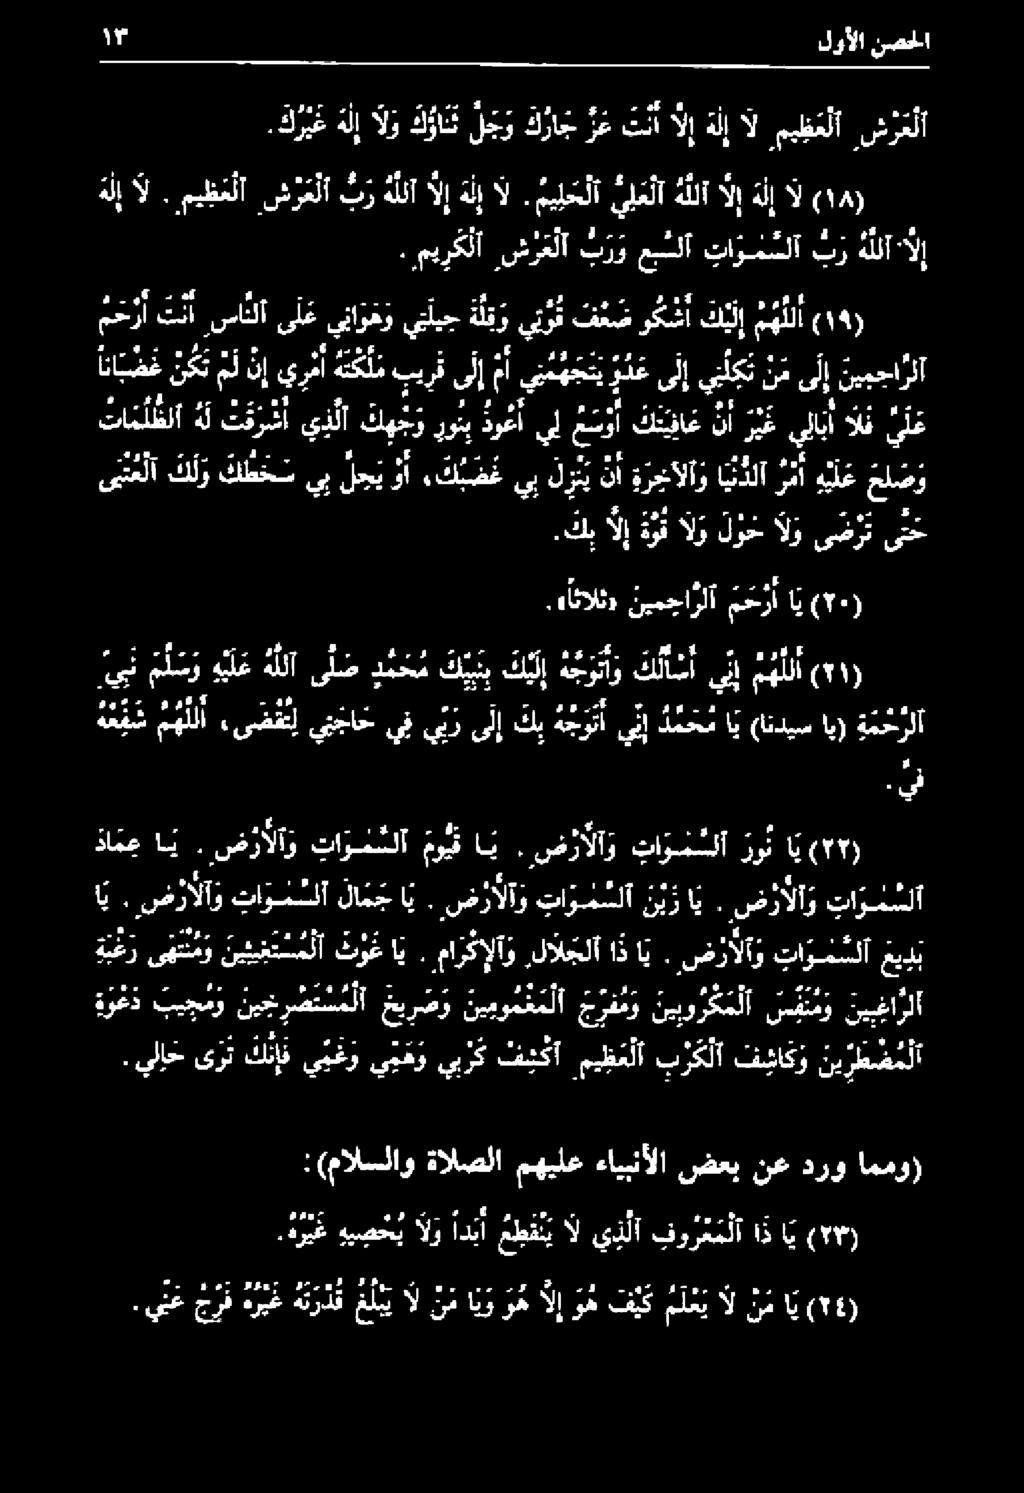 الحصن الأول ١٣
ٱلْعَرْشِ ٱلْعَظِيمِ لَا إِلٰهَ إِلَّا أَنْتَ عَزَّ جَارُكَ وَجَلَّ ثَنَاؤُكَ وَلَا إِلٰهَ غَيْرُكَ.
(١٨) لَا إِلٰهَ إِلَّا ٱللهُ ٱلْعَلِيُّ ٱلْحَلِيمُ. لَا إِلٰهَ إِلَّا ٱللهُ رَبُّ ٱلْعَرْشِ ٱلْعَظِيمِ. لَا إِلٰهَ
إِلَّا ٱللهُ رَبُّ ٱلسَّمٰوَاتِ ٱلسَّبْعِ وَرَبُّ ٱلْعَرْشِ ٱلْكَرِيمِ.
(١٩) أَللّٰهُمَّ إِلَيْكَ أَشْكُو ضَعْفَ قُوَّتِي وَقِلَّةَ حِيلَتِي وَهَوَانِي عَلَى ٱلنَّاسِ أَنْتَ أَرْحَمُ
ٱلرَّاحِمِينَ إِلَى مَنْ تَكِلُنِي إِلَى عَدُوٍّ يَتَجَهَّمُنِي أَمْ إِلَى قَرِيبٍ مَلَّكْتَهُ أَمْرِي إِنْ لَمْ تَكُنْ غَضْبَاناً
عَلَيَّ فَلَا أُبَالِي غَيْرَ أَنَّ عَافِيَتَكَ أَوْسَعُ لِي أَعُوذُ بِنُورِ وَجْهِكَ ٱلَّذِي أَشْرَقَتْ لَهُ ٱلظُّلُمَاتُ
وَصَلُحَ عَلَيْهِ أَمْرُ ٱلدُّنْيَا وَٱلْآخِرَةِ أَنْ يَنْزِلَ بِي غَضَبُكَ، أَوْ يَحِلَّ بِي سَخَطُكَ وَلَكَ ٱلْعُتْبَى
حَتَّى تَرْضَى وَلَا حَوْلَ وَلَا قُوَّةَ إِلَّا بِكَ.
(٢٠) يَا أَرْحَمَ ٱلرَّاحِمِينَ «ثَلَاثاً».
(٢١) أَللّٰهُمَّ إِنِّي أَسْأَلُكَ وَأَتَوَجَّهُ إِلَيْكَ بِنَبِيِّكَ مُحَمَّدٍ صَلَّى ٱللهُ عَلَيْهِ وَسَلَّمَ نَبِيِّ
ٱلرَّحْمَةِ (يا سيدنا) يَا مُحَمَّدُ إِنِّي أَتَوَجَّهُ بِكَ إِلَى رَبِّي فِي حَاجَتِي لِتُقْضَى، أَللّٰهُمَّ شَفِّعْهُ
فِيَّ.
(٢٢) يَا نُورَ ٱلسَّمٰوَاتِ وَٱلْأَرْضِ. يَا قَيُّومَ ٱلسَّمٰوَاتِ وَٱلْأَرْضِ. يَا عِمَادَ
ٱلسَّمٰوَاتِ وَٱلْأَرْضِ. يَا زَيْنَ ٱلسَّمٰوَاتِ وَٱلْأَرْضِ. يَا جَمَالَ ٱلسَّمٰوَاتِ وَٱلْأَرْضِ. يَا
بَدِيعَ ٱلسَّمٰوَاتِ وَٱلْأَرْضِ. يَا ذَا ٱلْجَلَالِ وَٱلْإِكْرَامِ. يَا غَوْثَ ٱلْمُسْتَغِيثِينَ وَمُنْتَهَى رَغْبَةِ
ٱلرَّاغِبِينَ وَمُنَفِّسَ ٱلْمَكْرُوبِينَ وَمُفَرِّجَ ٱلْمَغْمُومِينَ وَصَرِيخَ ٱلْمُسْتَصْرِخِينَ وَمُجِيبَ دَعْوَةِ
ٱلْمُضْطَرِّينَ وَكَاشِفَ ٱلْكَرْبِ ٱلْعَظِيمِ ٱكْشِفْ كَرْبِي وَهَمِّي وَغَمِّي فَإِنَّكَ تَرَى حَالِي.
(ومما ورد عن بعض الأنبياء عليهم الصلاة والسلام):
(٢٣) يَا ذَا ٱلْمَعْرُوفِ ٱلَّذِي لَا يَنْقَطِعُ أَبَداً وَلَا يُحْصِيهِ غَيْرُهُ.
(٢٤) يَا مَنْ لَا يَعْلَمُ كَيْفَ هُوَ إِلَّا هُوَ وَيَا مَنْ لَا يَبْلُغُ قُدْرَتَهُ غَيْرُهُ فَرِّجْ عَنِّي.